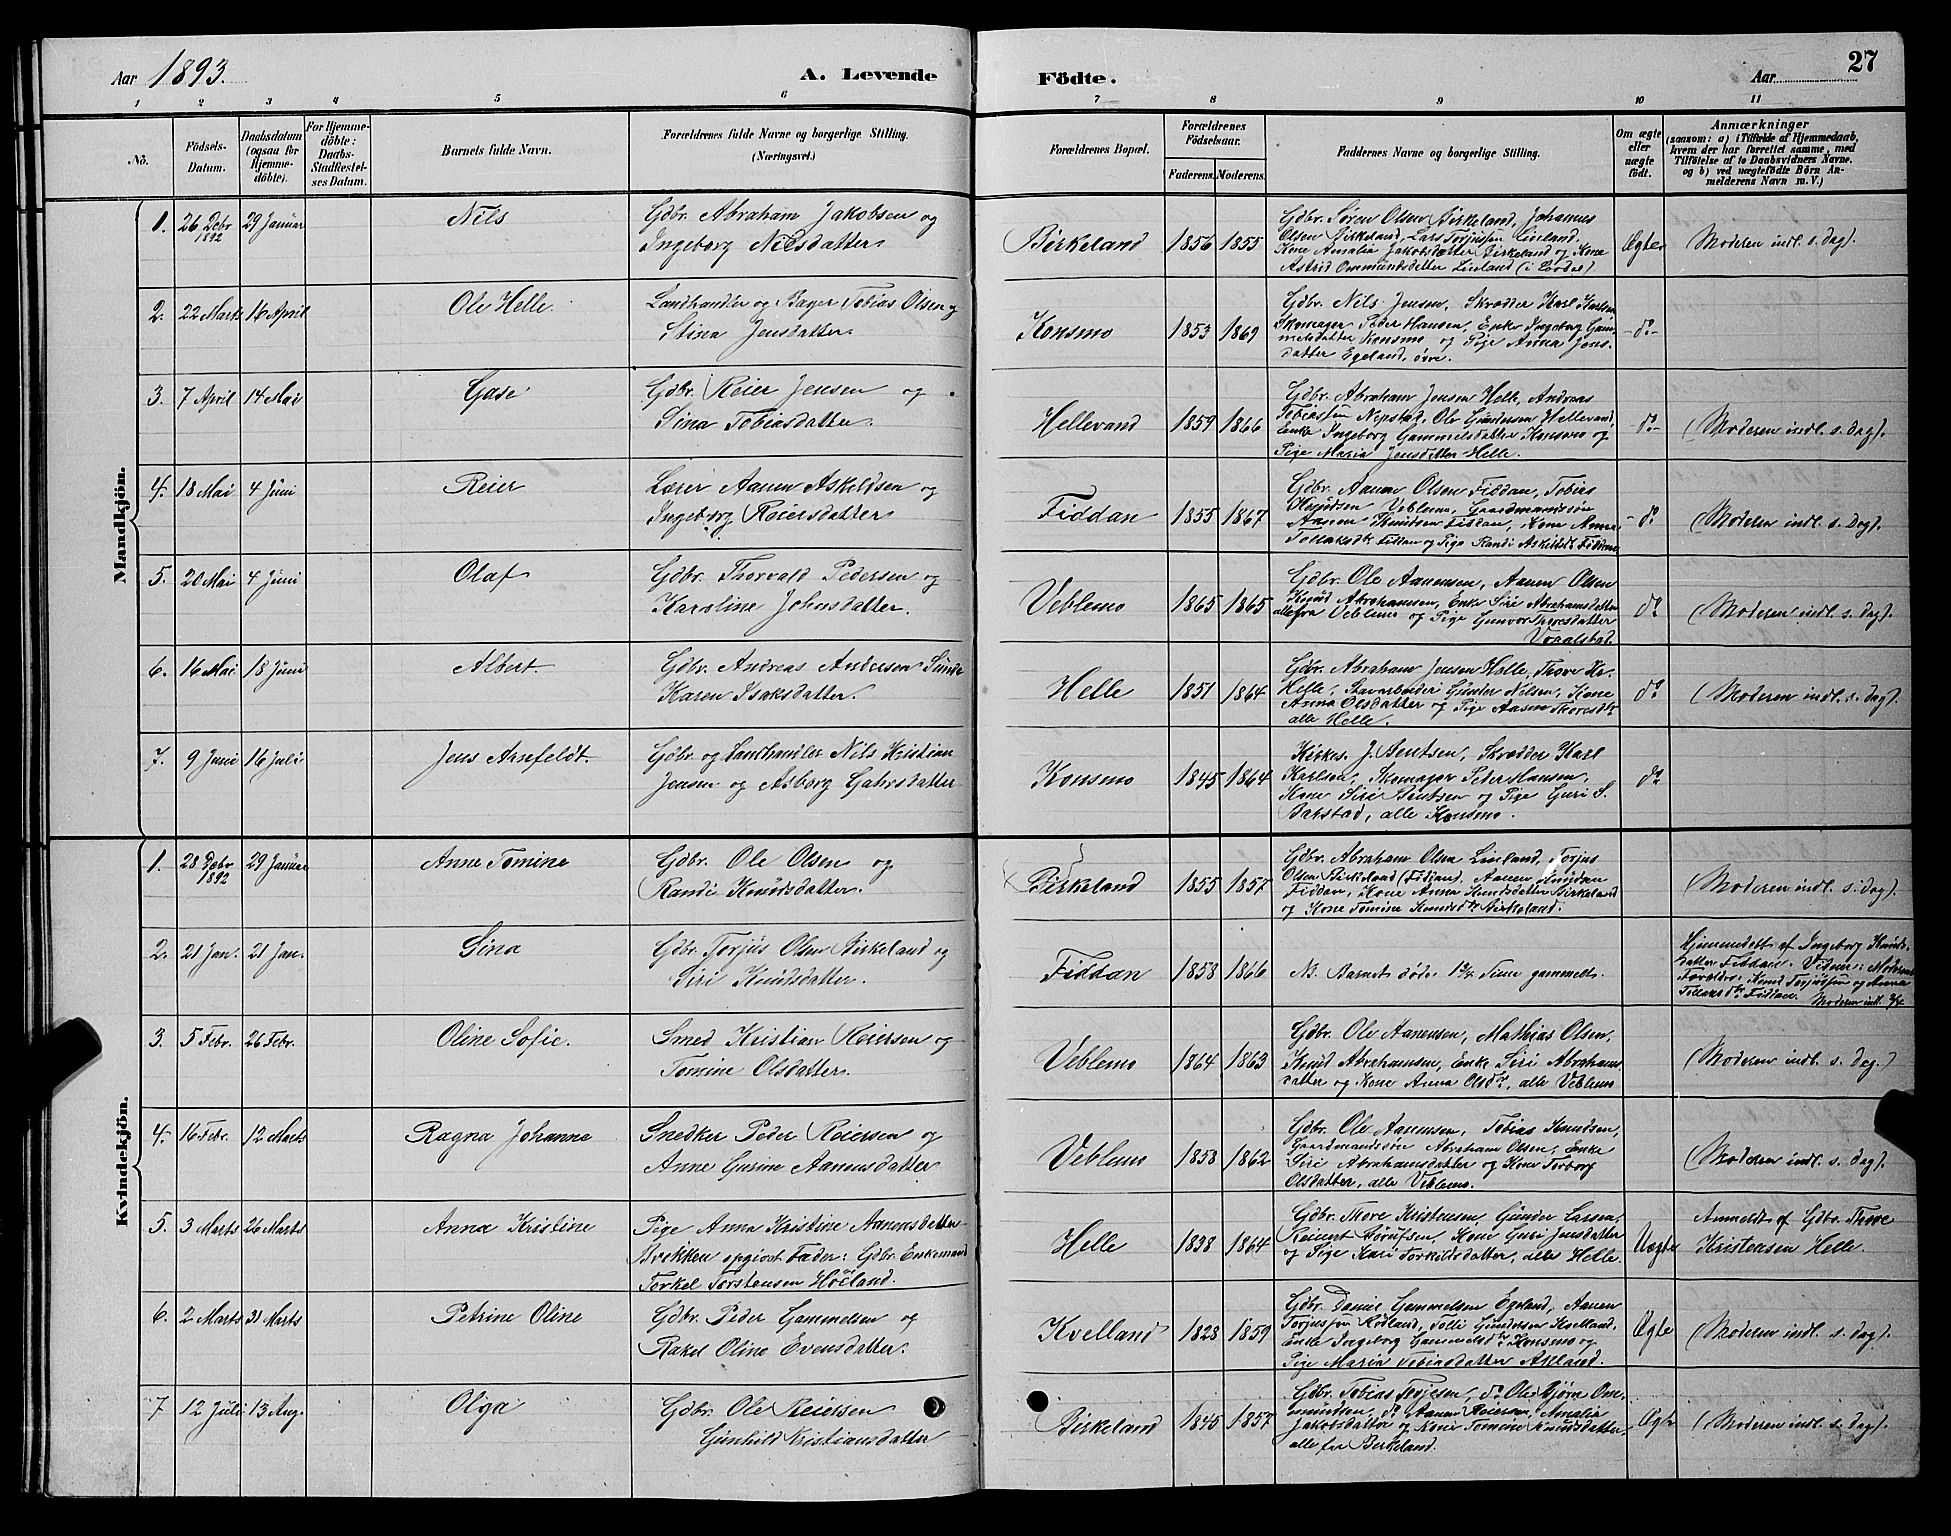 Aar 1893. A. Levende Födte. Aar 27
1 2 3 4 5 6 7 8 9 10 11
No.
Födsels-Datum.
Daabsdatum (ogsaa for Hjemme-döbte).
For Hjemme-döbte: Daabs-Stadfæstel-ses Datum.
Barnets fulde Navn.
Forældrenes fulde Navne og borgerlige Stilling. (Næringsvei.)
Forældrenes Bopæl.
Forældrenes Födselsaar.
Faderens. Moderens.
Faddernes Navne og borgerlige Stilling.
Om ægte eller uægte födt.
Anmærkninger
(saasom: a) i Tilfælde af Hjemmedaab,
hvem der har forrettet samme, med
Tilföielse af to Daabsvidners Navne,
og b) ved uægtefödte Börn An-
melderens Navn m. V.)
Mandkjön.
1. 26 Debr 1892 29 Januar Nils
Gdbr. Abraham Jakobsen og
Ingeborg Nilsdatter.
Birkeland 1856 1855
Gdbr. Søren Olsen Birkeland, Johannes
Olsen Birkeland, Lars Torjussen Linland,
Kone Amalia Jakobsdatter Birkeland og Kone
Astrid Ommundsdatter Linland
Ægte (Moderen indl. s. Dag).
2. 22 Marts 16 April Ole Helle.
Landhandler og Bager Tobias Olsen og
Stina Jensdatter.
Konsmo 1853 1869
Gdbr. Nils Jensen, Skrædder Karl Karlsen
Skomager Peder Hansen, Enke Ingeborg Gam-
melsdatter Konsmo og Pige Anna Jens-
datter Egeland, øvre.
- do -
3. 7 April 14 Mai Gase
Gdbr. Reier Jensen og
Sina Tobiasdatter.
Hellevand 1859 1866
Gdbr. Abraham Jensen Helle, Andreas
Tobiassen Nepstad, Ole Gundersen Hellevand,
Enke Ingeborg Gammelsdatter Konsmo og
Pige Maria Jensdatter Helle.
- do - (Moderen indl. s. Dag).
4. 18 Mai 4 Juni Reier
Lærer Aanen Askeldsen og
Ingeborg Reiersdatter
Fiddan 1855 1867
Gdbr. Aanen Olsen Fiddan, Tobias
Knudsen Veblemo, Gaardmandssøn
Aanen Knudsen Fiddan, Kone Anna
Tollaksdtr Fiddan og Pige Randi Askildsdtr Fiddan
- do (Moderen indl. s. Dag).
5. 20 Mai 4 Juni Olaf
Gdbr. Thorvald Pedersen og
Karoline Johnsdatter.
Veblemo 1865 1865
Gdbr. Ole Aanensen, Aanen Olsen
Knud Abrahamsen, Enke Siri Abrahamsdatter
alle fra Veblemo og Pige Gunvor Thoresdatter
do (Moderen indl. s. Dag).
6. 16 Mai 18 Juni Albert.
Gdbr. Andreas Andersen Sunde
Karen Isaksdatter.
Helle 1851 1864
Gdbr. Abraham Jensen Helle, Thore Kr.
Helle, Gunder Nilsen, Kone
Anna Olsdatter og Pige Aasen Thoresdtr
alle Helle.
do (Moderen indl. s. Dag).
7. 9 Juni 16 Juli Jens Arnfeldt.
Gdbr. og Landhandler Nils Kristian
Jensen og Asborg Gahrsdatter
Konsmo 1845 1864
Kirkes. J. Bentsen, Skrædder Karl
Karlsen, Skomager Peter Hansen,
Kone Siri Bentsen og Pige Guri S.
Bakstad, alle Konsmo.
do
Kvindekjön.
1. 28 Debr 1892 29 Januar Anne Tomine
Gdbr. Ole Olsen og
Randi Knudsdatter.
Birkeland 1855 1857
Gdbr. Abraham Olsen Linland, Torjus
Olsen Birkeland (Fidjan), Aanen
Fiddan, Kone Anna Knudsdatter Birkeland
og Kone Tomine Knudsdtr Birkeland.
(Moderen indl. s. Dag).
2. 21 Jan. 21 Jan. Sina
Gdbr. Torjus Olsen Birkeland og
Siri Knudsdatter.
Fiddan 1858 1866
NB. Barnet døde 1 3/4 Time gammelt.
Hjemmedøbt af Ingeborg Knuds-
datter Fiddan. Vidner: Moderens
Forældre Knud Torjussen og Anna
Tollaksdtr Fiddan. Moderen indl.
3. 5 Febr. 26 Febr. Oline Sofie.
Smed Kristian Reiersen og
Tomine Olsdatter.
Veblemo 1864 1863
Gdbr. Ole Aanensen, Mathias Olsen,
Knud Abrahamsen, Enke Siri Abrahams-
datter og Kone Anna Olsdtr, alle Veblemo
(Moderen indl. s. Dag.)
4. 16 Febr. 12 Marts Ragna Johanne
Snedker Peder Reiersen og
Anne Gurine Aanensdatter
Veblemo 1858 1862
Gdbr. Ole Aanensen, Tobias Knudsen,
Gaardmandssøn Abraham Olsen, Enke
Siri Abrahamsdatter og Kone Torborg
Olsdatter, alle Veblemo.
(Moderen indl. s. Dag).
5. 3 Marts 26 Marts Anna Kristine
Pige Anna Kristine Aanensdatter
Brekken opgivet Fader: Gdbr. Enkemand
Torkel Torstensen Høiland.
Helle 1838 1864
Gdbr. Thore Kristensen, Gunder Larsen,
Reinert Sørufsen, Kone Guri Jensdatter
og Pige Kari Torkildsdatter, alle Helle.
Uægte
Anmeldt af Gdbr. Thore
Kristensen Helle.
6. 2 Marts 31 Marts Petrine Oline
Gdbr. Peder Gammelsen og
Rakel Oline Evensdatter.
Kvelland 1828 1859
Gdbr. Daniel Gammelsen Egeland, Aanen
Torjussen Rødland, Tolli Gundersen Kvelland,
Enke Ingeborg Gammelsdtr Konsmo og
Pige Maria Tobiasdatter Akland.
Ægte (Moderen indl. s. Dag).
7 12 Juli 13 Aug. Olga
Gdbr. Ole Reiersen
Gunhild Kristiansdatter
Birkeland 1845 1857
Gdbr. Tobias Torjesen, do Ole Bjørn Om-
mundsen, do Aanen Reiersen, Amalia
Jakobsdatter og Kone Tomine Knudsdatter,
alle fra Birkeland.
Ægte (Moderen indl. s. Dag).